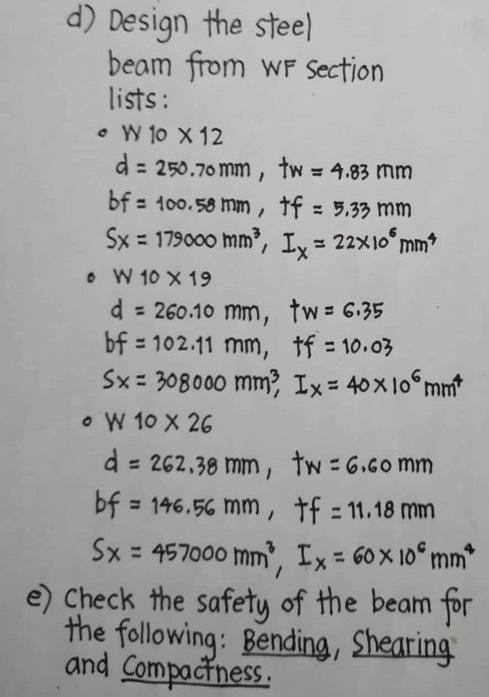 d) Design the steel
beam from WF Section
lists:
• W 10 X 12
d = 250.70 mm, tw = 4.83 mm
bf = 100.58 mm, tf = 5.33 mm
Sx = 179000 mm³, Ix = 22x10⁶ mm⁴
• W 10 X 19
d = 260.10 mm, tw = 6.35
bf = 102.11 mm, tf = 10.03
Sx = 308000 mm³, Ix = 40x10⁶ mm⁴
• W 10 X 26
d = 262.38 mm, tw = 6.60 mm
bf = 146.56 mm, tf = 11.18 mm
Sx = 457000 mm³, Ix = 60x10⁶ mm⁴
e) Check the safety of the beam for
the following: Bending, Shearing
and Compactness.